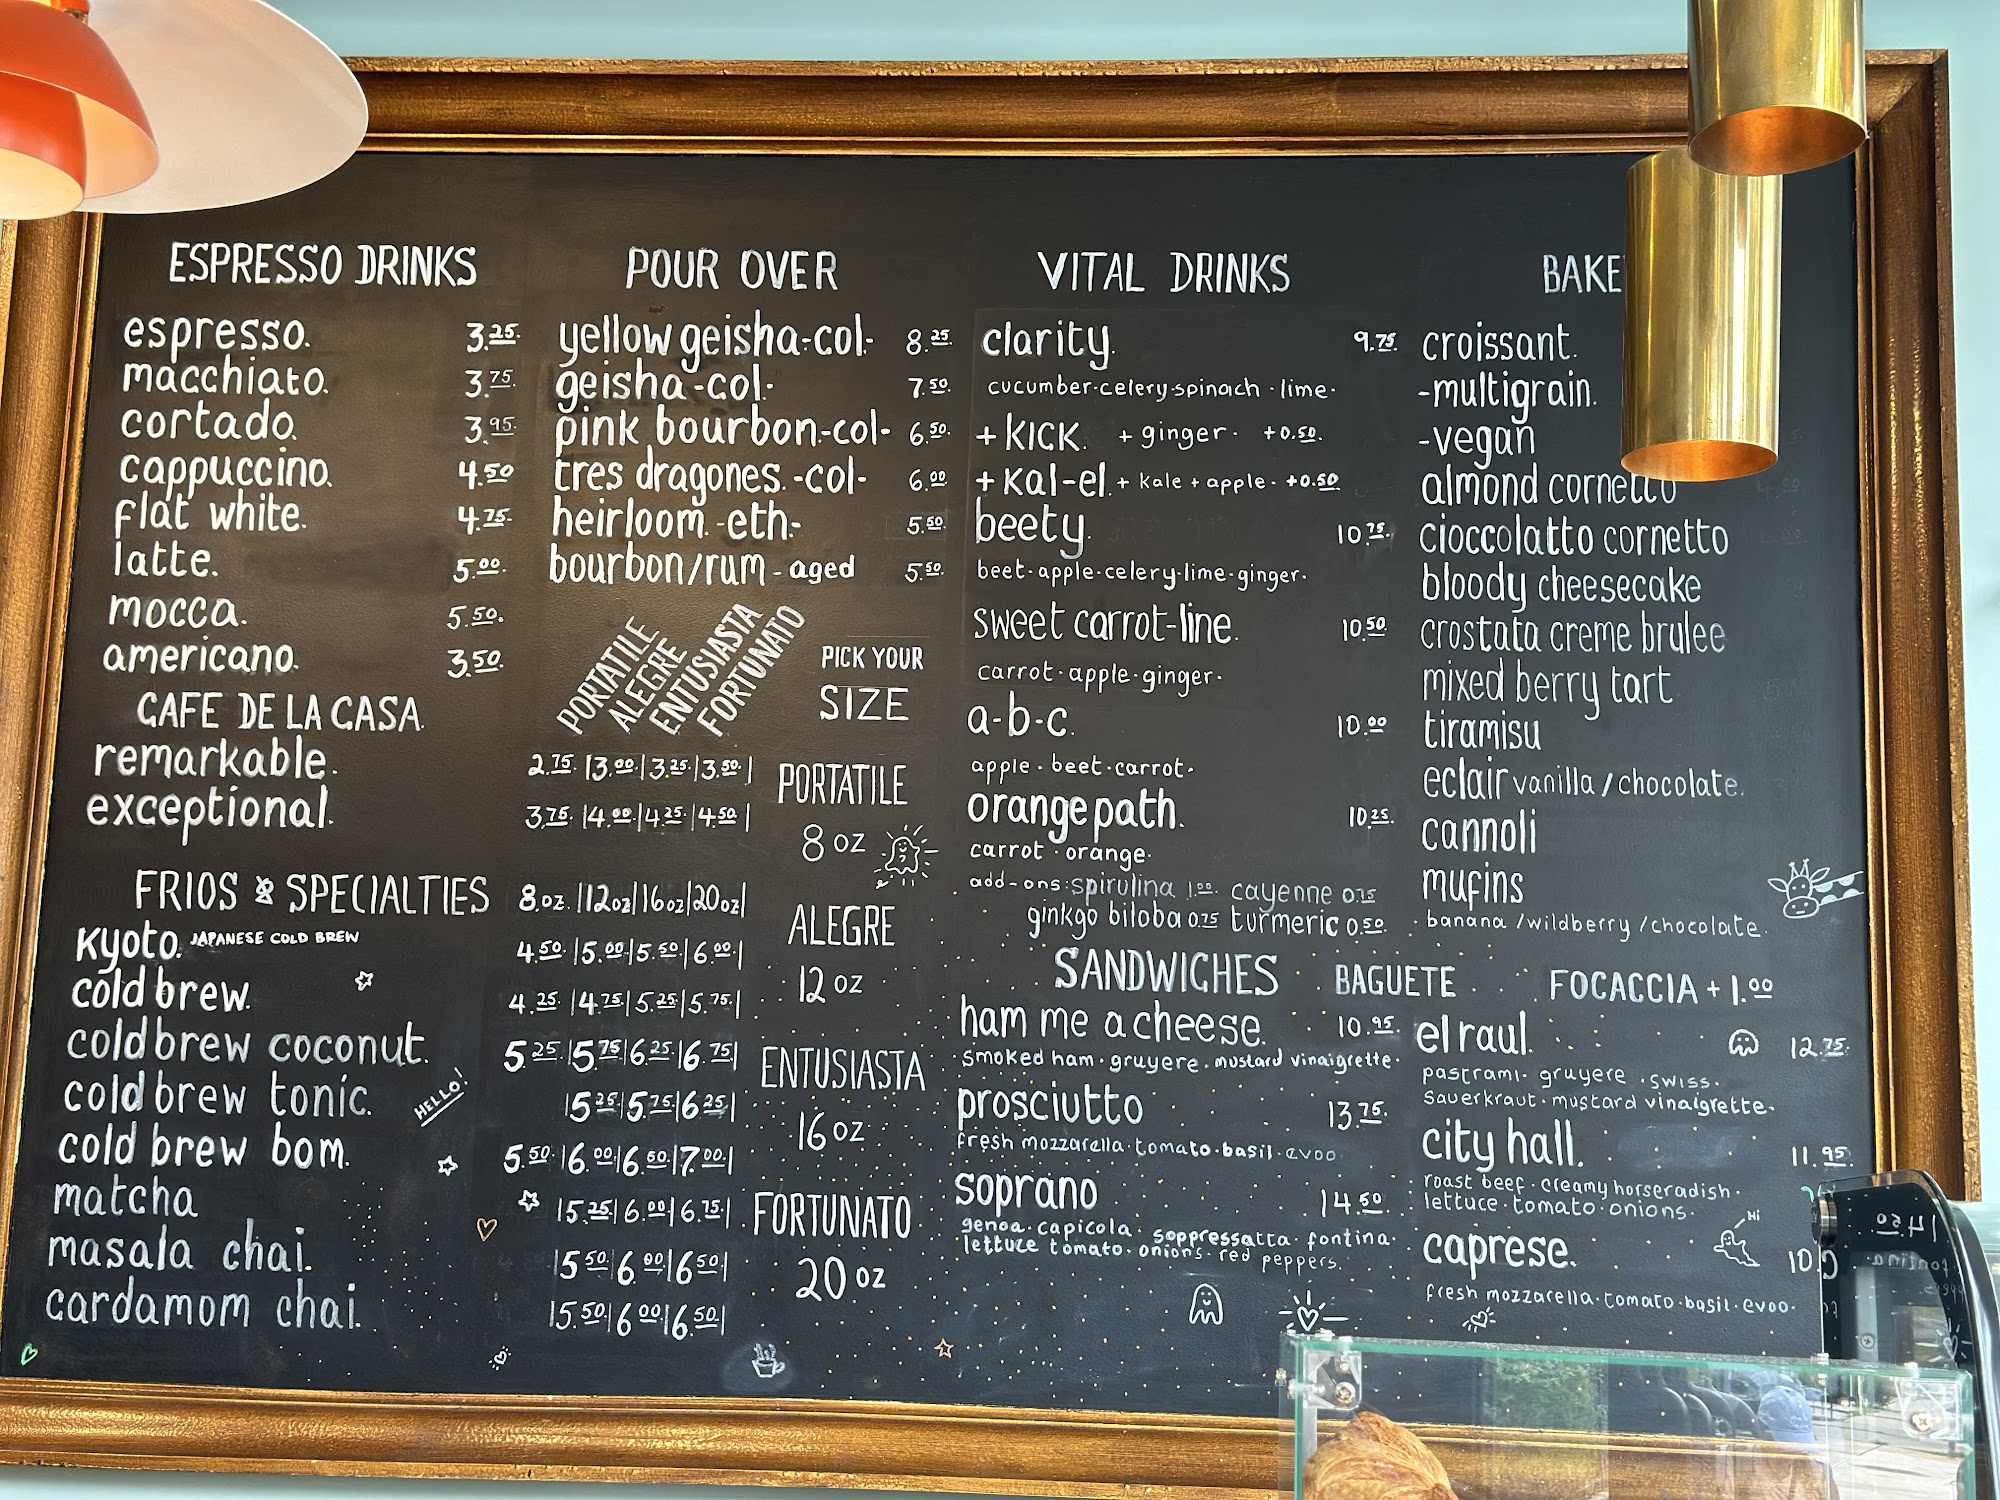 ESPRESSO DRINKS
espresso. 3.25
macchiato. 3.75
cortado. 3.95
cappuccino. 4.50
flat white. 4.75
latte. 5.00
mocca. 5.50
americano. 3.50
CAFE DE LA CASA.
PORTATILE
ALEGRE
ENTUSIASTA
FORTUNATO
remarkable. 2.75 | 3.00 | 3.25 | 3.50 |
exceptional. 3.75 | 4.00 | 4.25 | 4.50 |
FRIOS & SPECIALTIES 8.oz. | 12oz | 16oz | 20oz |
Kyoto. JAPANESE COLD BREW 4.50 | 5.00 | 5.50 | 6.00 |
cold brew. 4.25 | 4.75 | 5.25 | 5.75 |
cold brew coconut. 5.25 | 5.75 | 6.25 | 6.75 |
cold brew tonic. | 5.25 | 5.75 | 6.25 |
HELLO!
cold brew bom. 5.50 | 6.00 | 6.50 | 7.00 |
matcha | 5.25 | 6.00 | 6.75 |
masala chai. | 5.50 | 6.00 | 6.50 |
cardamom chai. | 5.50 | 6.00 | 6.50 |
POUR OVER
yellow geisha-col- 8.25
geisha-col- 7.50
pink bourbon.-col- 6.50
tres dragones.-col- 6.00
heirloom-eth- 5.50
bourbon/rum-aged 5.50
PICK YOUR
SIZE
PORTATILE
8 oz
ALEGRE
12 oz
ENTUSIASTA
16 oz
FORTUNATO
20 oz
VITAL DRINKS
clarity. 9.75
cucumber·celery·spinach·lime·
+ KICK. + ginger· +0.50.
+ Kal-el. + kale + apple· +0.50
beety. 10.75
beet·apple·celery·lime·ginger.
sweet carrot-line. 10.50
carrot·apple·ginger.
a-b-c. 10.00
apple·beet·carrot·
orange path. 10.25
carrot·orange·
add-ons: spirulina 1.00 cayenne 0.75
ginkgo biloba 0.75 turmeric 0.50.
BAKE
croissant.
-multigrain.
-vegan
almond cornetto
cioccolatto cornetto
bloody cheesecake
crostata creme brulee
mixed berry tart
tiramisu
eclair vanilla / chocolate.
cannoli
mufins
banana /wildberry /chocolate.
SANDWICHES BAGUETE FOCACCIA + 1.00
ham me a cheese. 10.95
smoked ham·gruyere·mustard vinaigrette·
prosciutto 13.75
fresh mozzarella·tomato·basil·evoo
soprano 14.50
genoa·capicola·soppressatta·fontina·
lettuce tomato·onions·red peppers.
el raul. 12.75
pastrami·gruyere·swiss·
sauerkraut·mustard vinaigrette·
city hall. 11.95
roast beef·creamy horseradish·
lettuce·tomato·onions·
Hi
caprese. 10.
fresh mozzarella·tomato·basil·evoo·